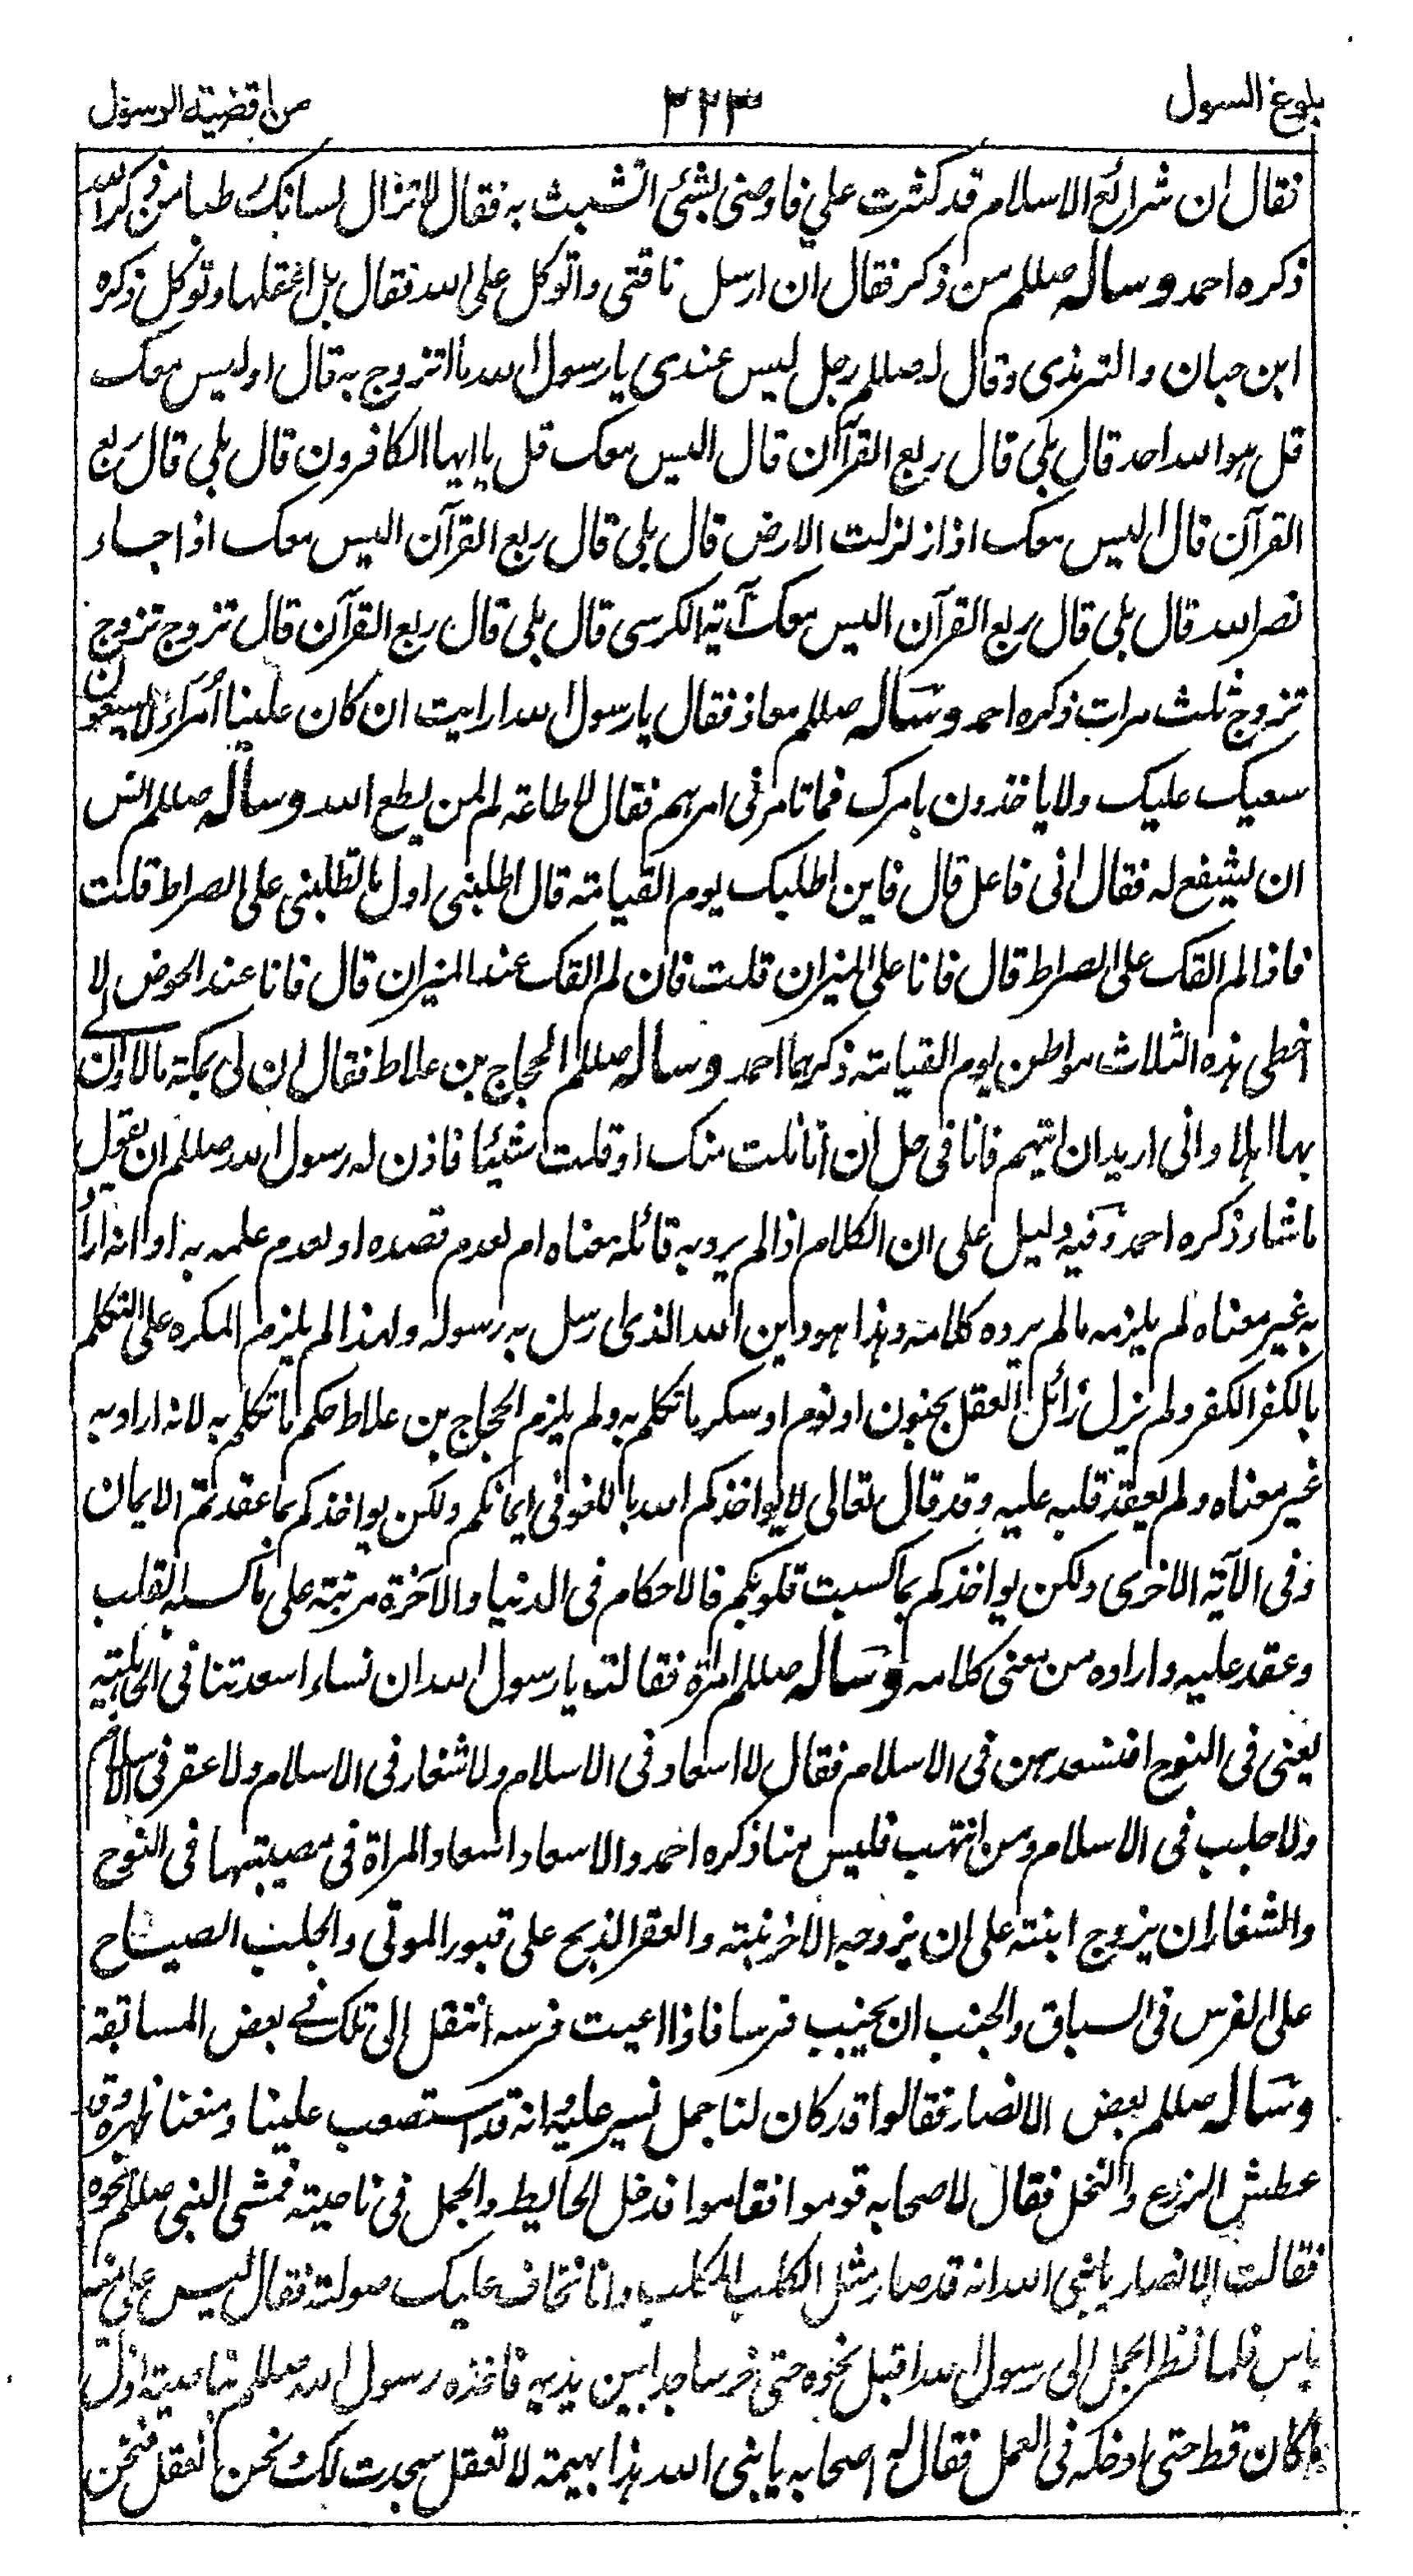 بلوغ السول ٣٢٣ من اقضية الرسول
فقال ان شرائع الاسلام قد كثرت علي فاوصنى بشئ اتشبث به فقال لا تزال لسانك رطبا من ذكر الله
ذكره احمد وساله صللم من ذكر فقال ان ارسل ناقتى واتوكل على الله فقال بل اعقلها وتوكل ذكره
ابن حبان والترمذى وقال له صللم رجل ليس عندى يا رسول الله ما اتزوج به قال اوليس معك
قل هو الله احد قال بلى قال ربع القرآن قال اليس معك قل يا ايها الكافرون قال بلى قال ربع
القرآن قال اليس معك اذا زلزلت الارض قال بلى قال ربع القرآن اليس معك اذا جاء
نصر الله قال بلى قال ربع القرآن اليس معك آية الكرسى قال بلى قال ربع القرآن قال تزوج تزوج
تزوج ثلث مرات ذكره احمد وساله صللم معاذ فقال يا رسول الله ارايت ان كان علينا أمراء لا يسعون
سعيك عليك ولا ياخذون بامرك فما تامر فى امرهم فقال لا طاعة لمن لم يطع الله وساله صللم انس
ان يشفع له فقال انى فاعل قال فاين اطلبك يوم القيامة قال اطلبنى اول ما تطلبنى على الصراط قلت
فاذا لم القك على الصراط قال فانا على الميزان قلت فان لم القك عند الميزان قال فانا عند الحوض لا
اخطى هذه الثلاث مواطن يوم القيامة ذكرهما احمد وساله صللم الحجاج بن علاط فقال ان لى بمكة مالا وان لى
بها اهلا وانى اريد ان اتيهم فانا فى حل ان انا نلت منك او قلت شيئا فاذن له رسول الله صللم ان يقول
ما شاء ذكره احمد وفيه دليل على ان الكلام اذا لم يرد به قائله معناه ام لعدم قصده او لعدم علمه به او انه اراد
به غير معناه لم يلزمه ما لم يرده كلامه وهذا هو دين الله الذى ارسل به رسوله ولهذا لم يلزم المكره على التكلم
بالكفر الكفر ولم يزل زائل العقل بجنون او نوم او سكر ما تكلم به ولم يلزم الحجاج بن علاط حكم ما تكلم به لانه اراد به
غير معناه ولم يعقد قلبه عليه وقد قال تعالى لا يواخذكم الله باللغو فى ايمانكم ولكن يواخذكم بما عقدتم الايمان
وفى الآية الاخرى ولكن يواخذكم بما كسبت قلوبكم فالاحكام فى الدنيا والآخرة مرتبة على ما كسبه القلب
وعقد عليه واراده من معنى كلامه وساله صللم امراة فقالت يا رسول الله ان نساء اسعدتنا فى الجاهلية
يعنى فى النوح افنسعدهن فى الاسلام فقال لا اسعاد فى الاسلام ولا شغار فى الاسلام ولا عقر فى الاسلام
ولا جلب فى الاسلام ومن انتهب فليس منا ذكره احمد والاسعاد اسعاد المراة فى مصيبتها فى النوح
والشغار ان يزوج ابنته على ان يزوجه الاخر بنته والعقر الذبح على قبور الموتى والجلب الصياح
على الفرس فى السباق والجنب ان يجنب فرسا فاذا اعيت فرسه انتقل الى تلك فے بعض المسابقة
وساله صللم بعض الانصار فقالوا قد كان لنا جمل نسير عليه انه قد استصعب علينا ومنعنا ظهره وقد
عطش الزرع والنخل فقال لاصحابه قوموا فقاموا فدخل الحائط والجمل فى ناحيته فمشى النبى صللم نحوه
فقالت الانصار يا نبى الله انه قد صار مثل الكلب الكلب وانا نخاف عليك صولته فقال ليس على منه
باس فلما نظر الجمل الى رسول الله اقبل نحوه حتى خر ساجدا بين يديه فاخذه رسول الله صللم بناصيته اذل
ما كان قط حتى ادخله فى العمل فقال له اصحابه يا نبى الله هذا بهيمة لا تعقل سجدت لك ونحن نعقل فنحن